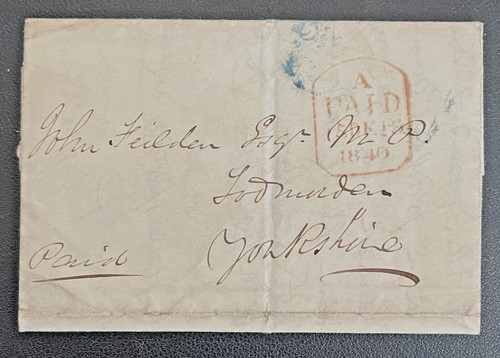 A
PAID
1840
John Feilden Esqr. M P.
Todmorden
Yorkshire
Paid